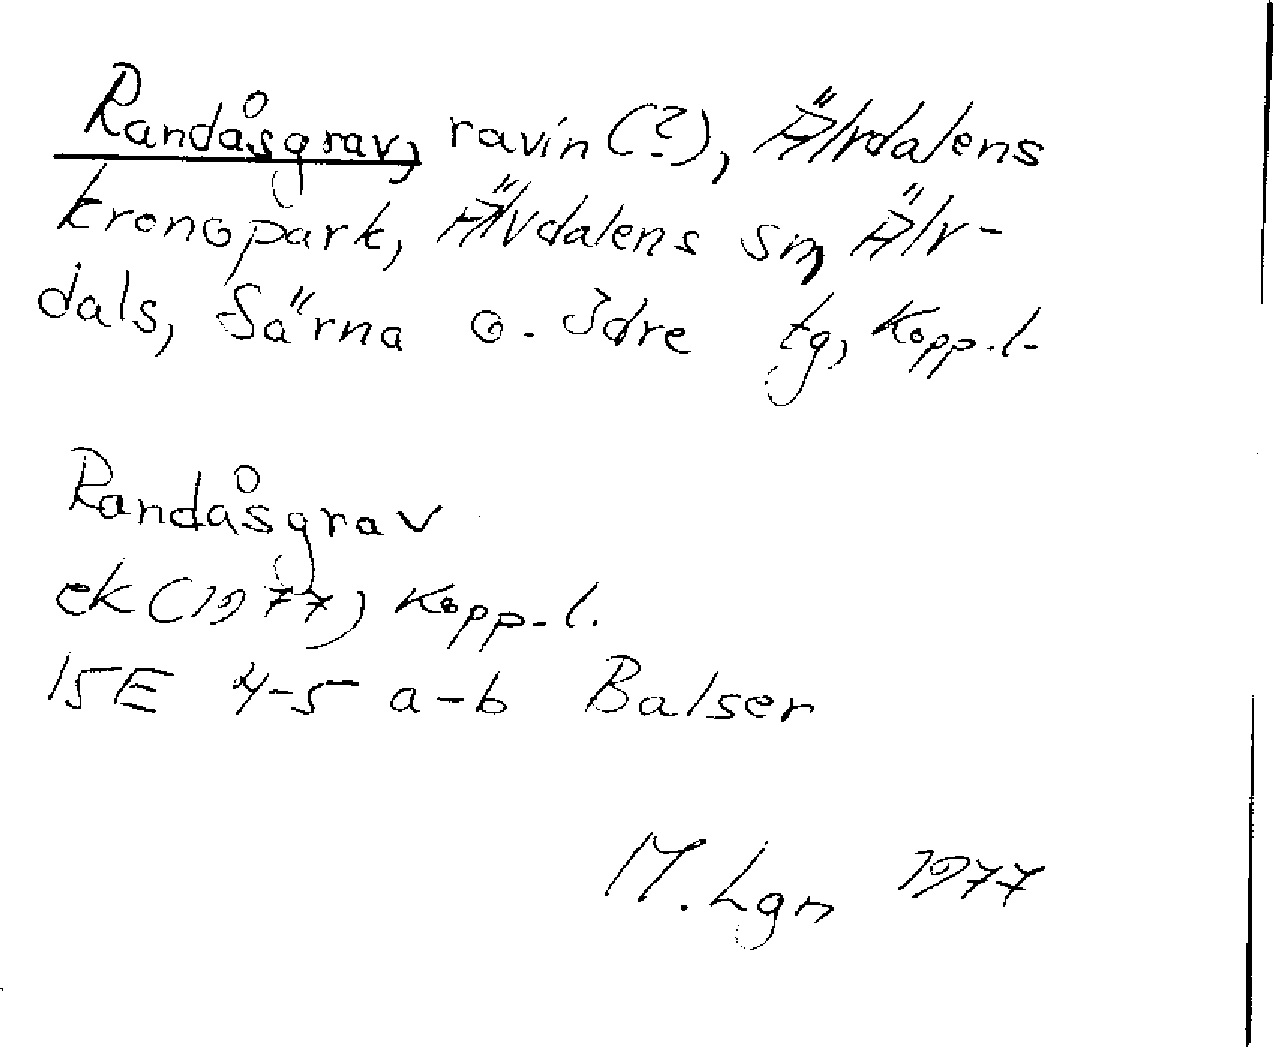 Randåsgrav, ravin (?), Älvdalens
kronopark, Älvdalens sn, Älv-
dals, Särna o. Idre tg, Kopp. l.
Randåsgrav
ek (1977) Kopp. l.
15E 4-5 a-b Balser
M. Lgn 1977